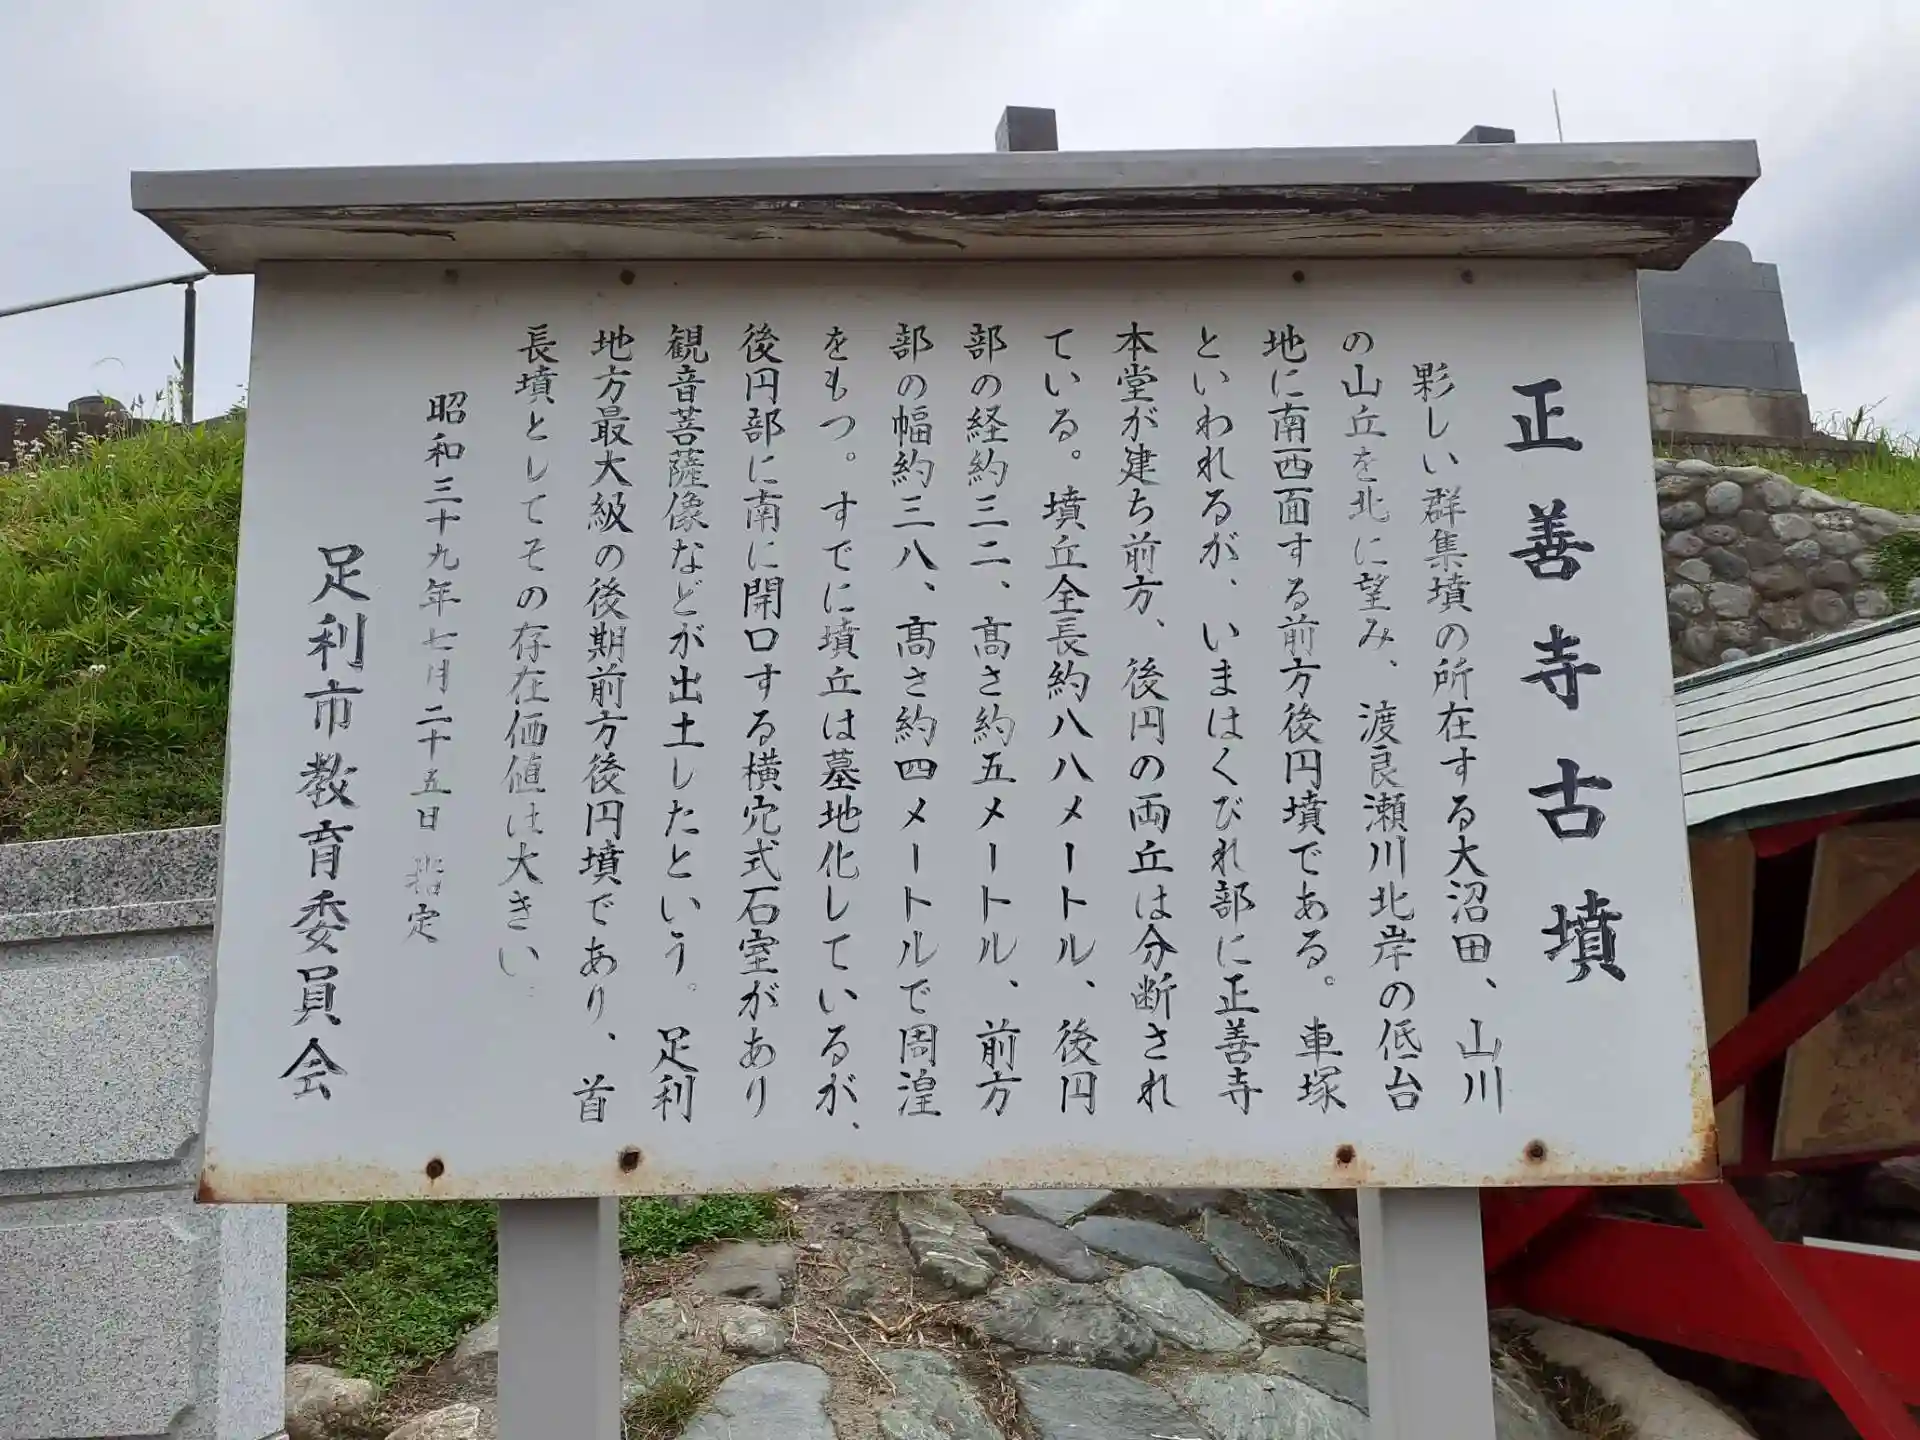 正善寺古墳
夥しい群集墳の所在する大沼田、山川
の山丘を北に望み、渡良瀬川北岸の低台
地に南西面する前方後円墳である。車塚
といわれるが、いまはくびれ部に正善寺
本堂が建ち前方、後円の両丘は分断され
ている。墳丘全長約八八メートル、後円
部の経約三二、高さ約五メートル、前方
部の幅約三八、高さ約四メートルで周湟
をもつ。すでに墳丘は墓地化しているが、
後円部に南に開口する横穴式石室があり
観音菩薩像などが出土したという。足利
地方最大級の後期前方後円墳であり、首
長墳としてその存在価値は大きい。
昭和三十九年七月二十五日指定
足利市教育委員会